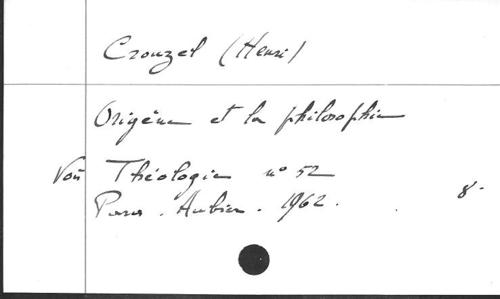 Crouzel (Henri)
Origène et la philosophie
Voir Théologie n° 52
Paris. Aubier. 1962. 8°